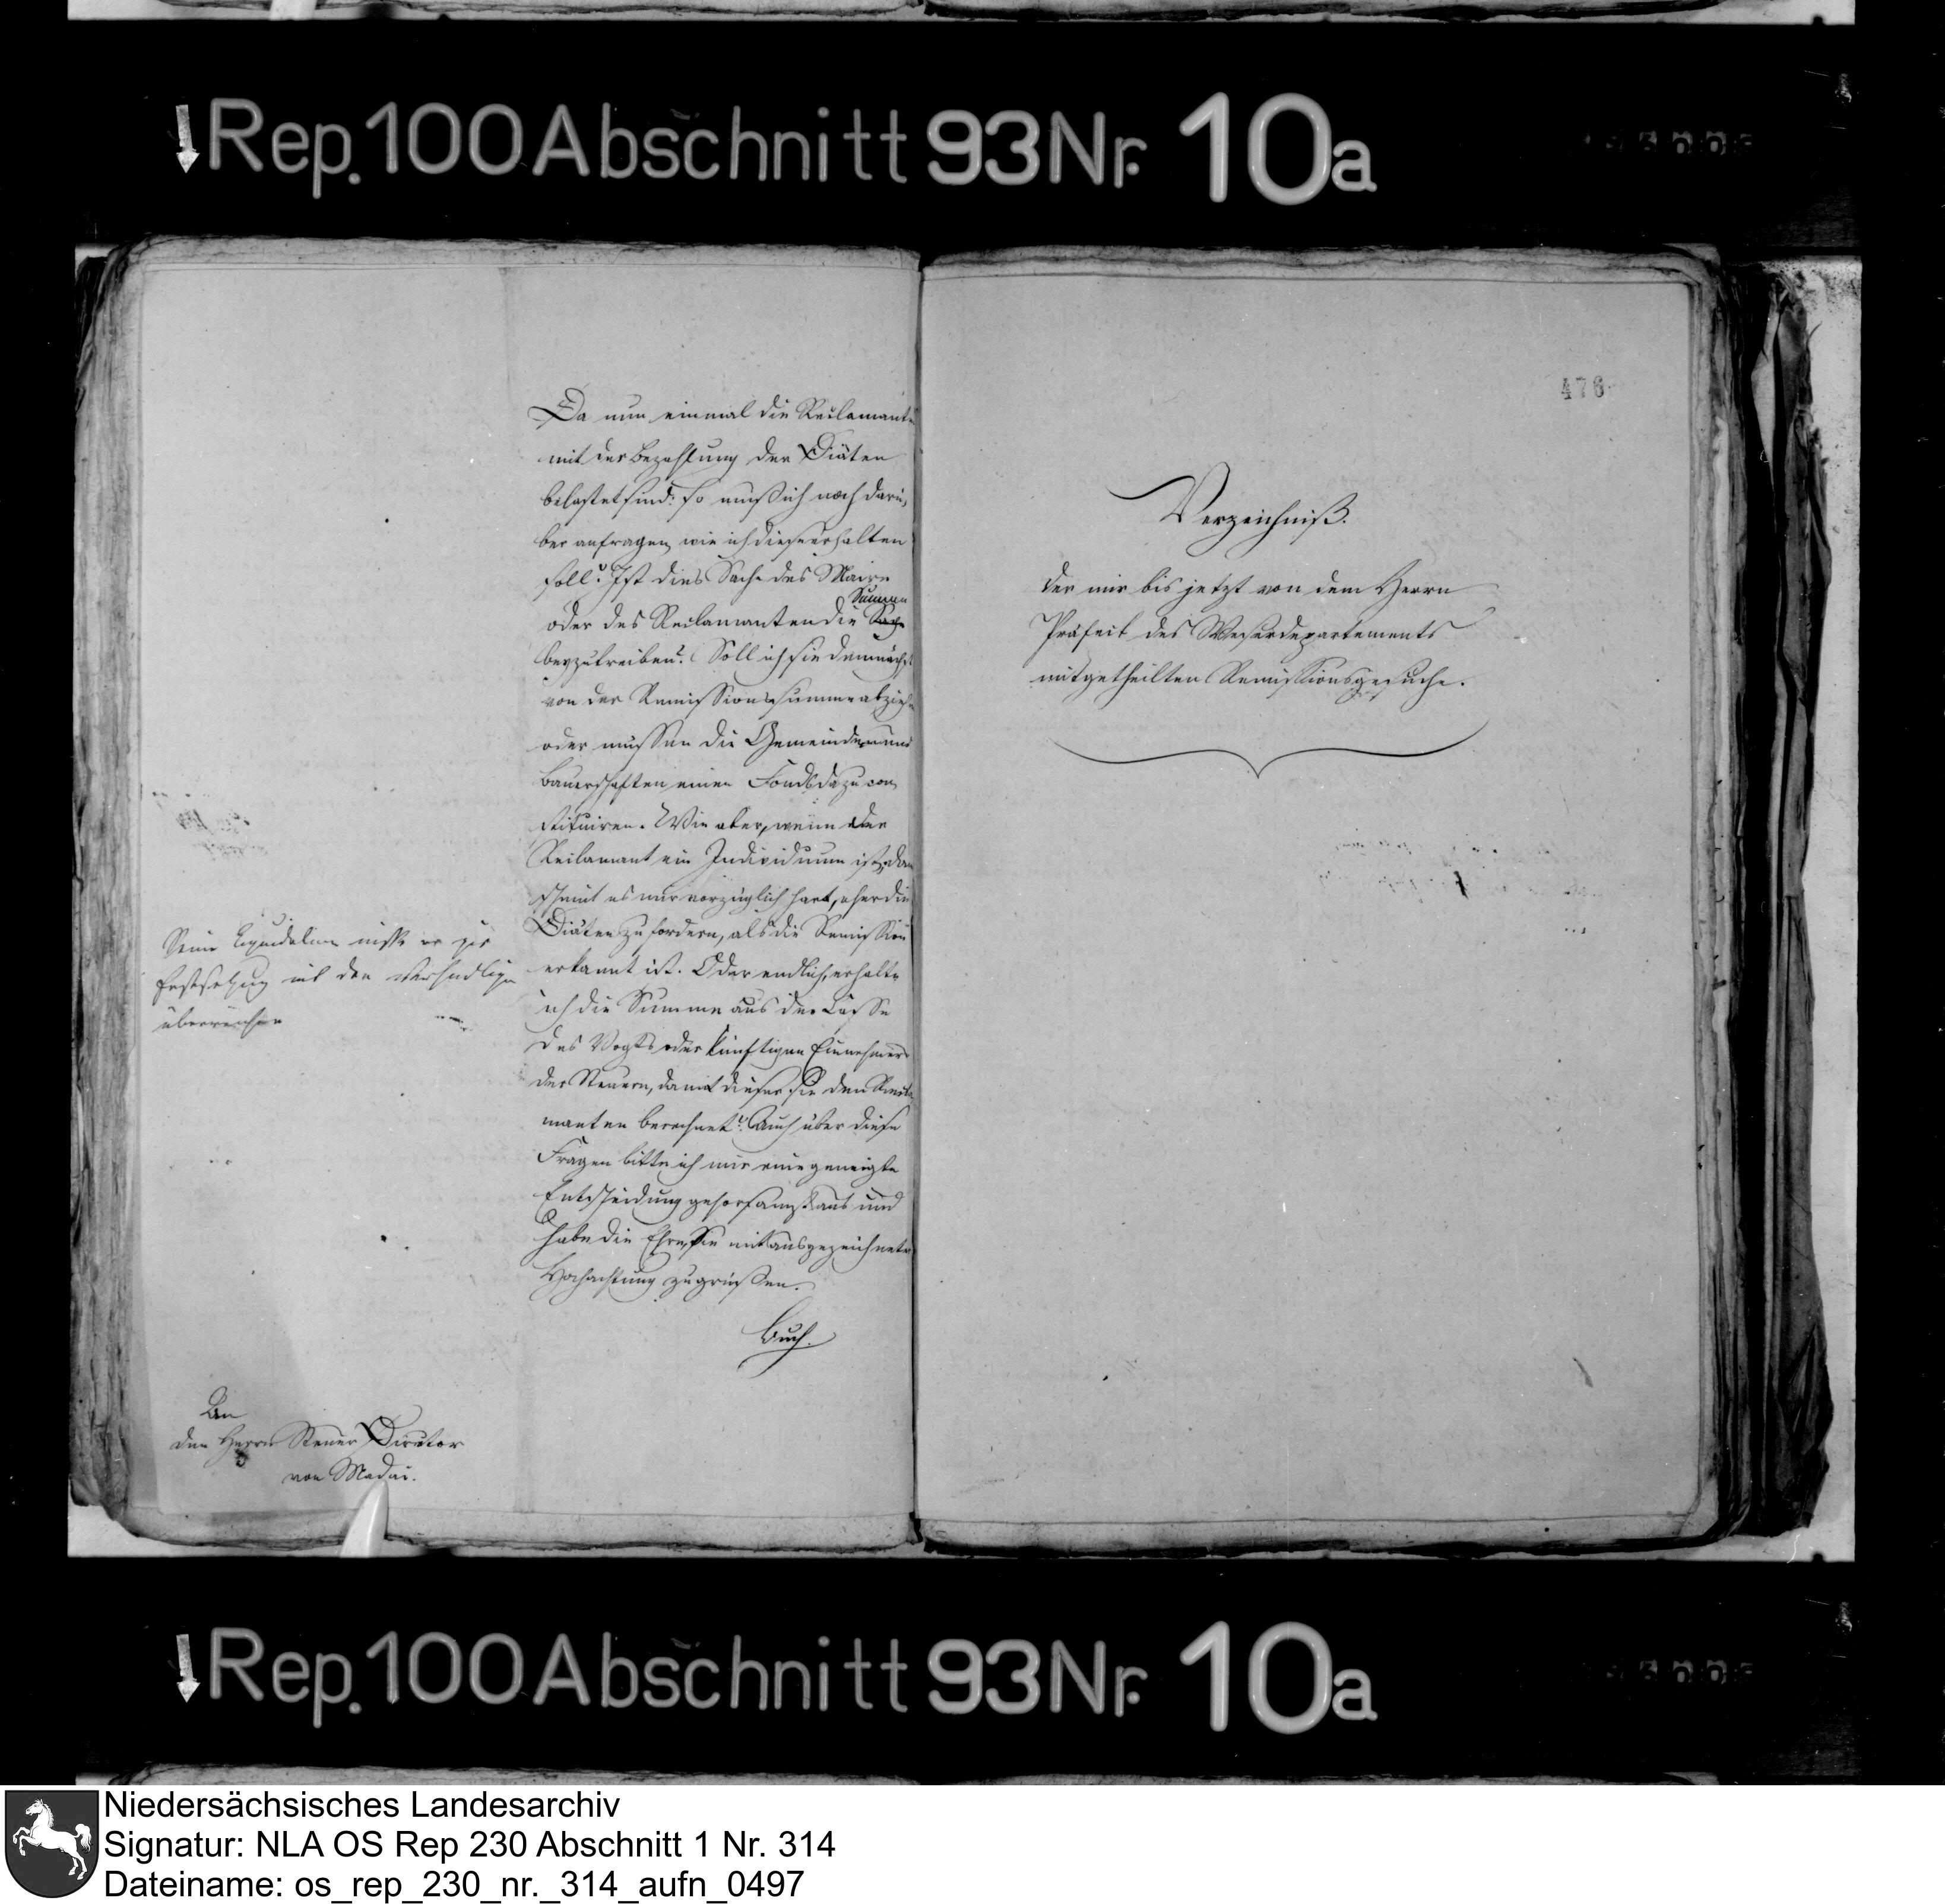 Rep. 100 Abschnitt 93 Nr. 10a
Da nun einmal die Reclamanten
mit der Bezahlung der Diäten
belastet sind: so muß ich noch darü-
ber anfragen, wie ich diese erhalten
soll? Ist dies Sache des Maire
Summe
oder des Reclamanten die Sache
beyzutreiben? Soll ich sie demnächst
von der Remissionssumme abziehn
oder müssen die Gemeinden und
Bauerschaften einen Fonds dazu con-
stituiren. Wie aber, wenn der
Reclamant ein Individuum ist, dann
scheint es mir vorzüglich hart, eher die
Diäten zu fordern, als die Remission
erkannt ist. Oder endlich, erhalte
ich die Summe aus der Casse
des Vogts oder künftigen Einnehmers
der Steuern, damit dieser sie den Recla-
manten berechnet? Auch über diese
Fragen bitte ich mir eine geneigte
Entscheidung gehorsamst aus und
habe die Ehre, Sie mit ausgezeichneter
Hochachtung zu grüßen.
Buch.
Seine Liquidation müsse er zur
Festsetzung mit den Verhandlungen
überreichen
An
den Herrn Steuer Director
von Madai.
476
Verzeichniß.
der mir bis jetzt von dem Herrn
Präfect des Weserdepartements
mitgetheilten Remissionsgesuche.
Rep. 100 Abschnitt 93 Nr. 10a
Niedersächsisches Landesarchiv
Signatur: NLA OS Rep 230 Abschnitt 1 Nr. 314
Dateiname: os_rep_230_nr._314_aufn_0497